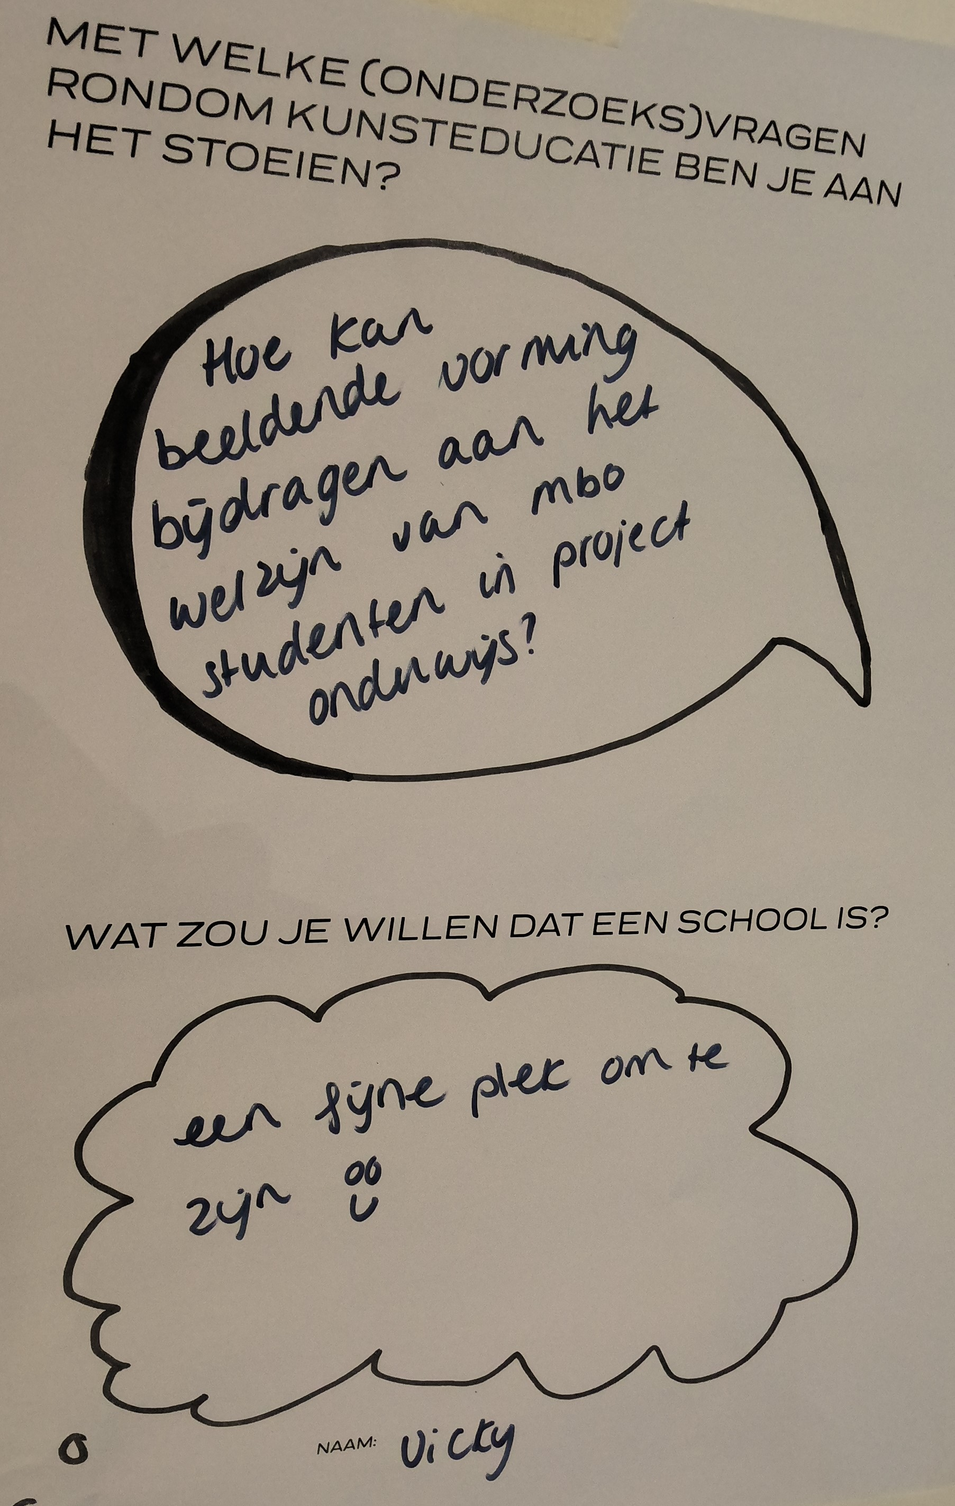 MET WELKE (ONDERZOEKS)VRAGEN
RONDOM KUNSTEDUCATIE BEN JE AAN
HET STOEIEN?
Hoe kan
beeldende vorming
bijdragen aan het
welzijn van mbo
studenten in project
onderwijs?
WAT ZOU JE WILLEN DAT EEN SCHOOL IS?
een fijne plek om te
zijn
NAAM: Vicky